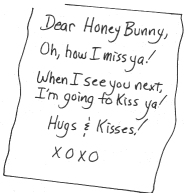 Dear Honey Bunny,
Oh, how I miss ya!
When I see you next,
I'm going to Kiss ya!
Hugs & Kisses!
XOXO